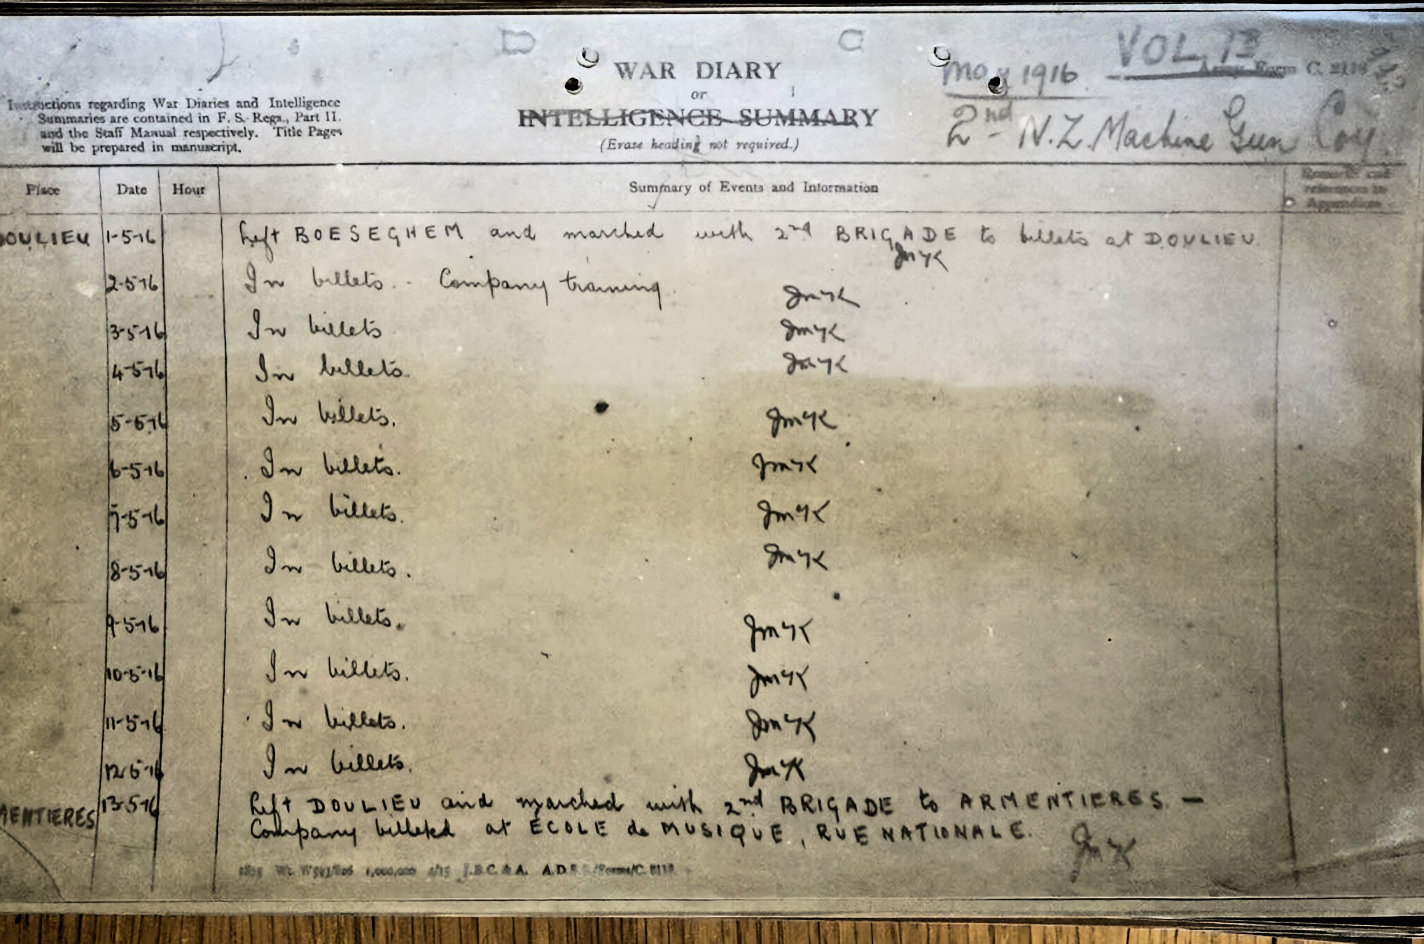 D C
WAR DIARY
or
INTELLIGENCE SUMMARY
(Erase heading not required.)
May 1916
VOL.
Army Form C. 2118
2nd N.Z. Machine Gun Coy.
Instructions regarding War Diaries and Intelligence
Summaries are contained in F. S. Regs., Part II.
and the Staff Manual respectively. Title Pages
will be prepared in manuscript.
Place Date Hour Summary of Events and Information Remarks and
references to
Appendices
DOULIEU 1-5-16 Left BOESEGHEM and marched with 2nd BRIGADE to billets at DOULIEU
2-5-16 In billets. - Company training.
3-5-16 In billets
4-5-16 In billets.
5-5-16 In billets.
6-5-16 In billets.
7-5-16 In billets.
8-5-16 In billets.
9-5-16 In billets.
10-5-16 In billets.
11-5-16 In billets.
12-5-16 In billets.
MENTIERES 13-5-16 Left DOULIEU and marched with 2nd BRIGADE to ARMENTIERES. —
Company billeted at ÉCOLE de MUSIQUE, RUE NATIONALE.
1,000,000 J.B.C. & A. A.D.S.S./Forms/C. 2118